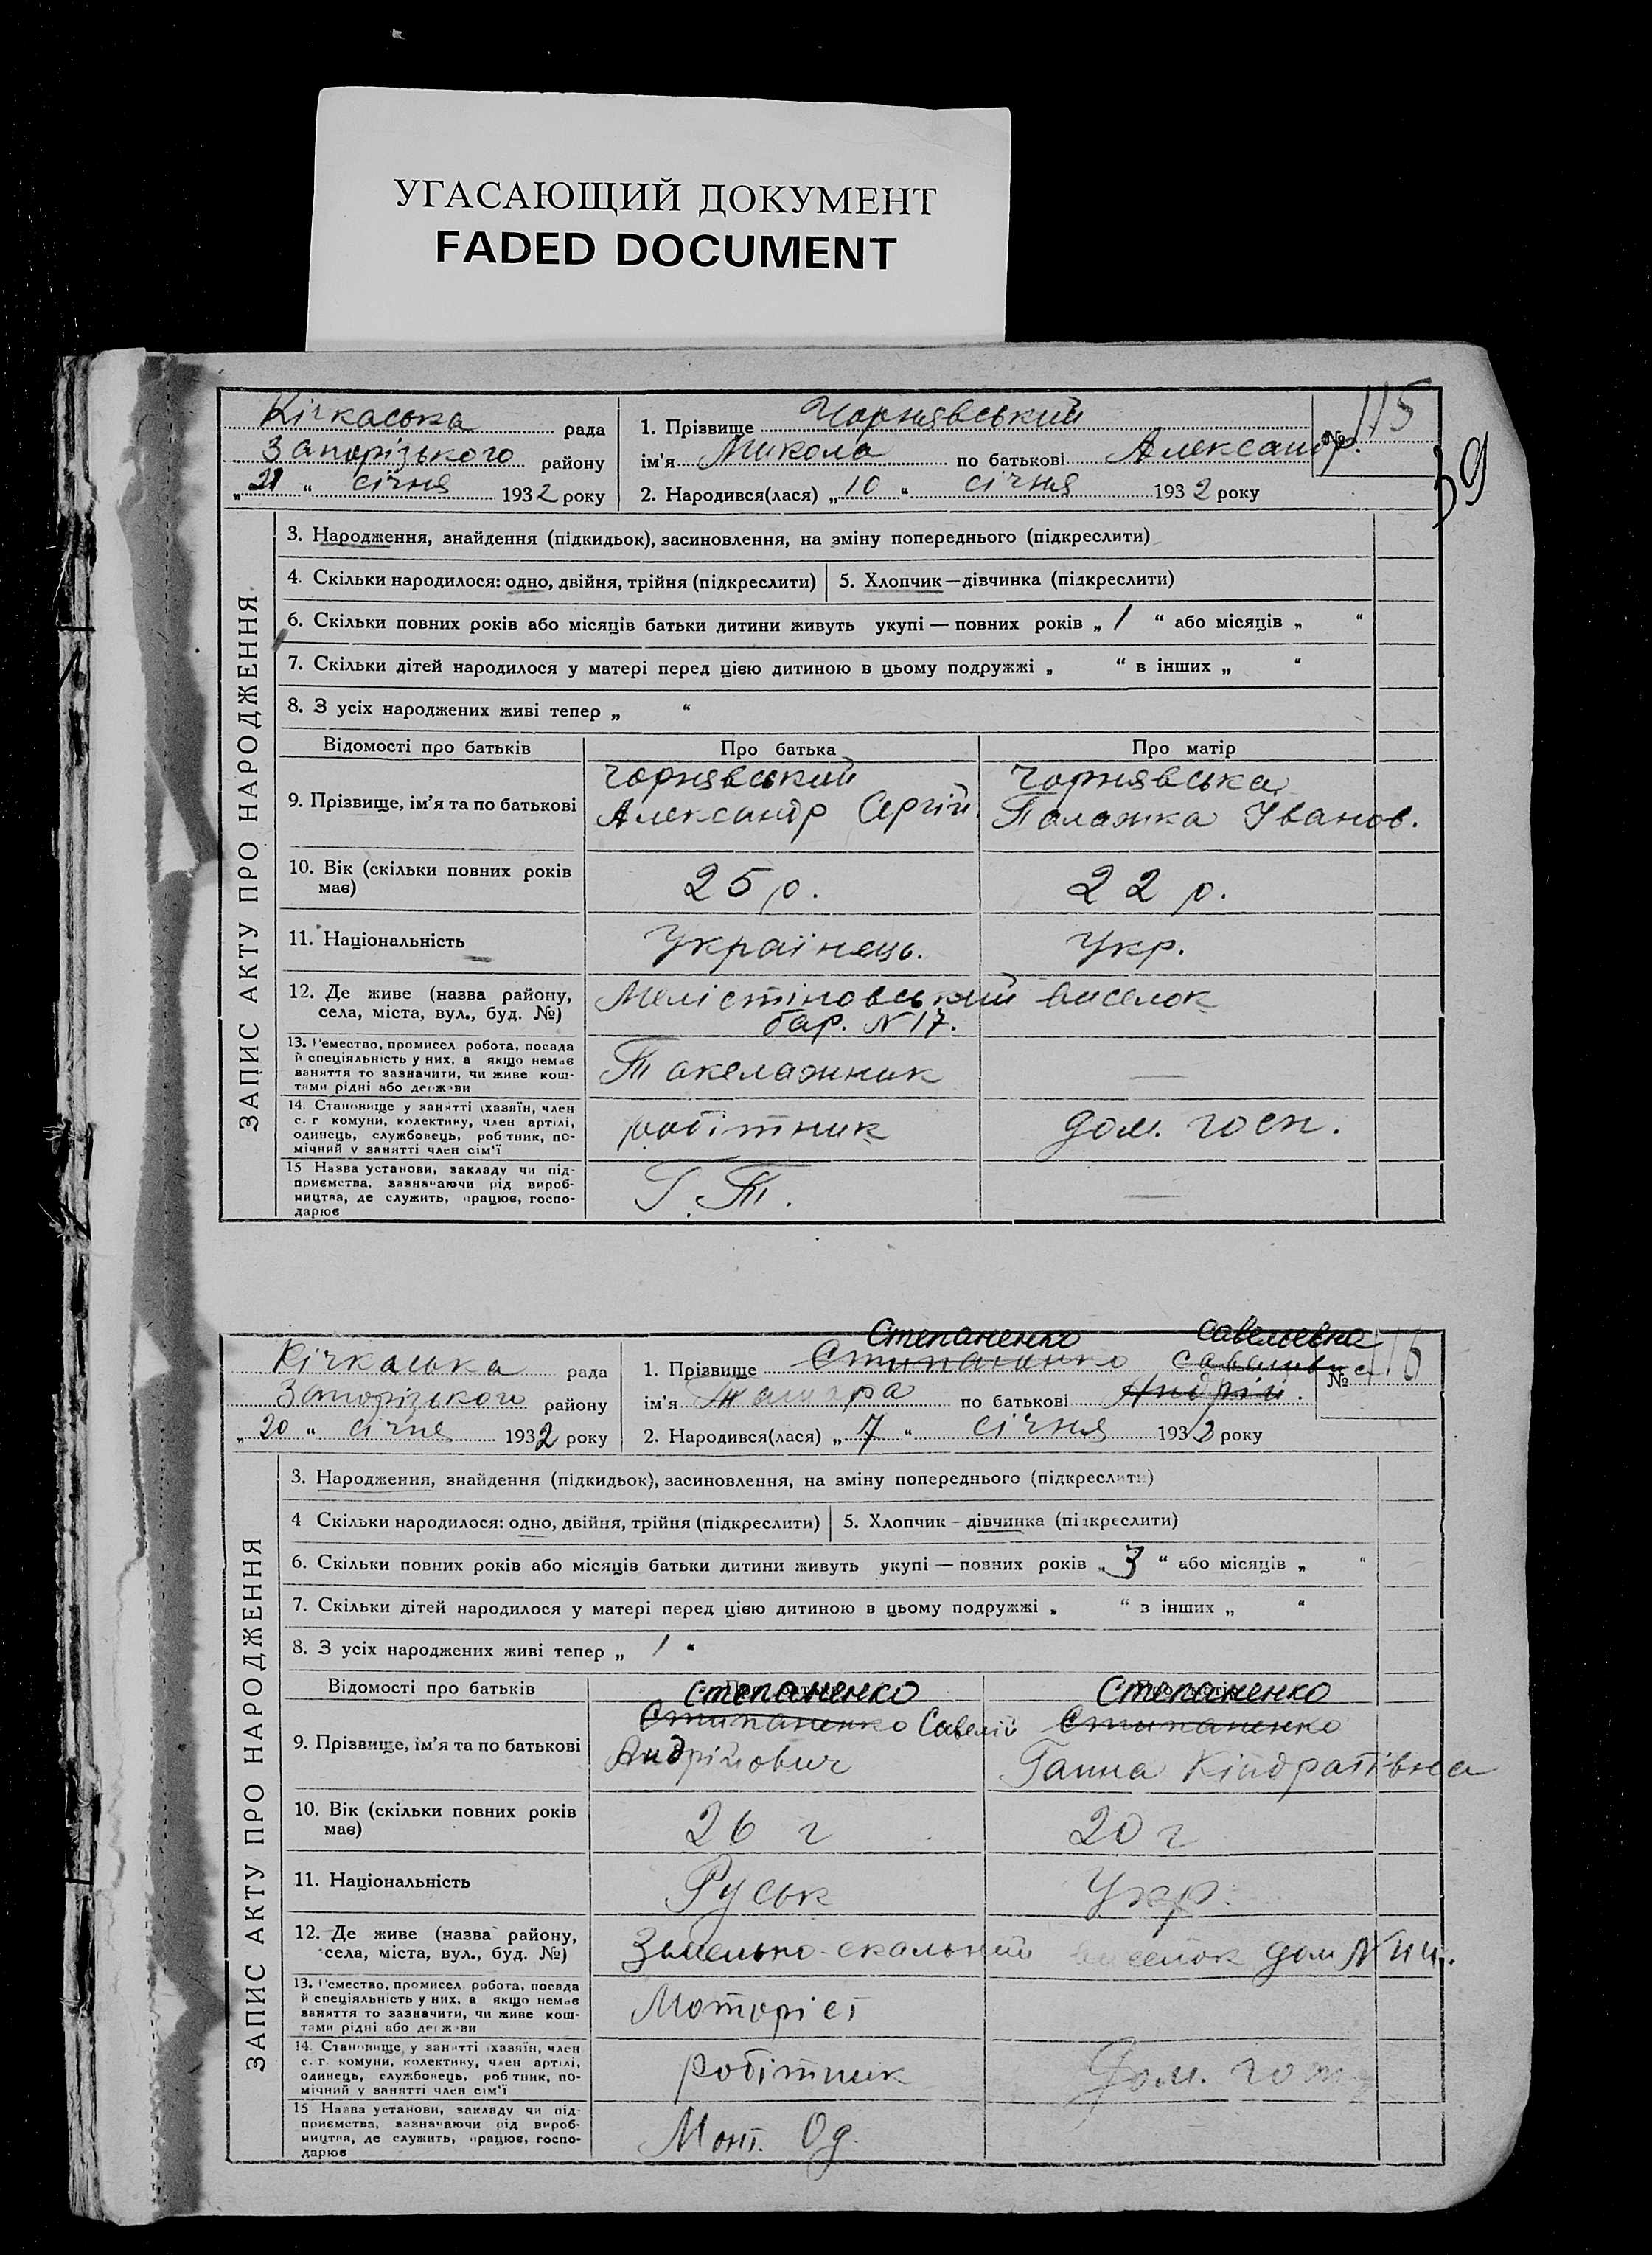 УГАСАЮЩИЙ ДОКУМЕНТ
FADED DOCUMENT
39
ЗАПИС АКТУ ПРО НАРОДЖЕННЯ
Кічкаська рада
Запорізького району
„21“ січня 1932 року
1. Прізвище Чорнявський № 115
ім'я Микола по батькові Александр.
2. Народився(лася) „10“ січня 1932 року
3. Народження, знайдення (підкидьок), засиновлення, на зміну попереднього (підкреслити)
4. Скільки народилося: одно, двійня, трійня (підкреслити) 5. Хлопчик—дівчинка (підкреслити)
6. Скільки повних років або місяців батьки дитини живуть укупі — повних років „1“ або місяців „ “
7. Скільки дітей народилося у матері перед цією дитиною в цьому подружжі „ “ в інших „ “
8. З усіх народжених живі тепер „ “
Відомості про батьків Про батька Про матір
9. Прізвище, ім'я та по батькові
Чорнявський
Александр Сергій.
Чорнявська
Палажка Іванов.
10. Вік (скільки повних років має) 25 р. 22 р.
11. Національність Українець. Укр.
12. Де живе (назва району,
села, міста, вул., буд. №)
виселок
бар. N 17.
13. Ремество, промисел робота, посада
й спеціяльність у них, а якщо немає
заняття то зазначити, чи живе кош-
тами рідні або держави
Такелажник —
14. Становище у занятті (хазяїн, член
с.-г. комуни, колективу, член артілі,
одинець, службовець, робітник, по-
мічний у занятті член сім'ї
робітник дом. госп.
15 Назва установи, закладу чи під-
приємства, зазначаючи рід вироб-
ництва, де служить, працює, госпо-
дарює
Г. Т. —
ЗАПИС АКТУ ПРО НАРОДЖЕННЯ
Кічкаська рада
Запорізького району
„20“ січня 1932 року
Степаненко Савельевна
1. Прізвище Стипаненко № 116
ім'я Тамара по батькові Андрій.
2. Народився(лася) „7“ січня 1932 року
3. Народження, знайдення (підкидьок), засиновлення, на зміну попереднього (підкреслити)
4 Скільки народилося: одно, двійня, трійня (підкреслити) 5. Хлопчик—дівчинка (підкреслити)
6. Скільки повних років або місяців батьки дитини живуть укупі — повних років „3“ або місяців „ “
7. Скільки дітей народилося у матері перед цією дитиною в цьому подружжі „ “ з інших „ “
8. З усіх народжених живі тепер „1“
Відомості про батьків
9. Прізвище, ім'я та по батькові
Степаненко
Стипаненко Савелій
Андрійович
Степаненко
Стипаненко
Ганна Кіндратівна
10. Вік (скільки повних років має) 26 г 20 г
11. Національність Руськ Укр.
12. Де живе (назва району,
села, міста, вул., буд. №)
скальний виселок дом N
13. Ремество, промисел робота, посада
й спеціяльність у них, а якщо немає
заняття то зазначити, чи живе кош-
тами рідні або держави
Моторіст
14. Становище у занятті (хазяїн, член
с.-г. комуни, колективу, член артілі,
одинець, службовець, робітник, по-
мічний у занятті член сім'ї
робітник Дом. госп
15 Назва установи, закладу чи під-
приємства, зазначаючи рід вироб-
ництва, де служить, працює, госпо-
дарює
Монт. Од.